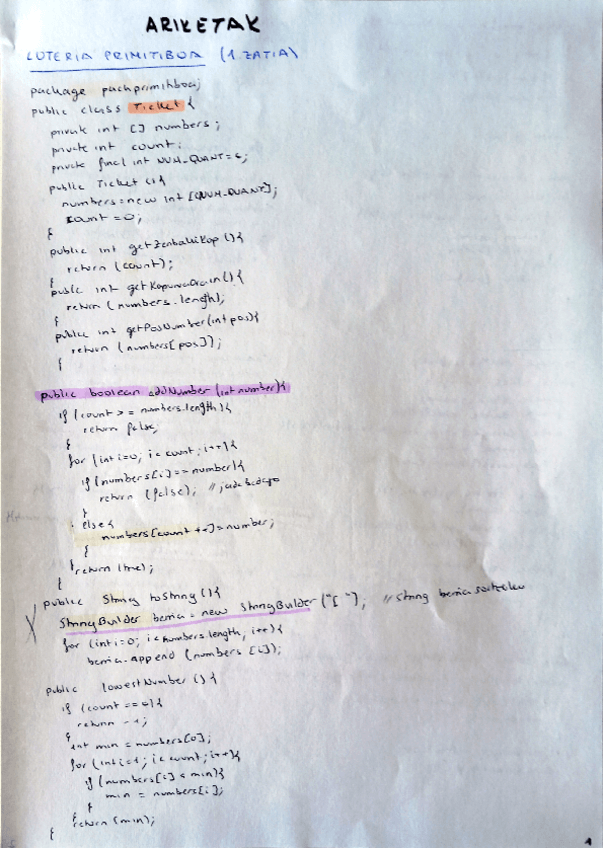 ARIKETAK
LOTERIA PRIMITIBOA (1. ZATIA)
package packprimitiboa;
public class Ticket {
private int [] numbers;
private int count;
private final int NUM_QUANT = 6;
public Ticket () {
numbers = new int [NUM_QUANT];
count = 0;
}
public int getZenbakiKop () {
return (count);
}
public int getKopurua () {
return (numbers.length);
}
public int getPosNumber (int pos) {
return (numbers [pos]);
}
public boolean addNumber (int number) {
if (count >= numbers.length) {
return false;
}
for (int i=0; i< count; i++) {
if (numbers [i] == number) {
return (false); //
}
else {
numbers [count ++] = number;
}
}
return (true);
}
public String toString () {
StringBuilder berria = new StringBuilder ("[ "); // string berria sortzeko
for (int i=0; i< numbers.length, i++) {
berria.append (numbers [i]);
public lowestNumber () {
if (count == 0) {
return -1;
}
int min = numbers [0];
for (int i=1; i< count; i++) {
if (numbers [i] < min) {
min = numbers [i];
}
}
return (min);
}
1